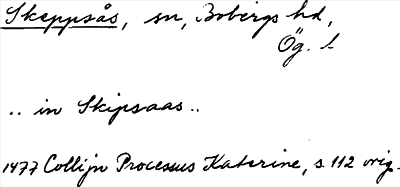 Skeppsås, sn, Bobergs hd,
Ög. l
.. in Skipsaas ..
1477 Collijn Processus Katerine, s 112 orig.